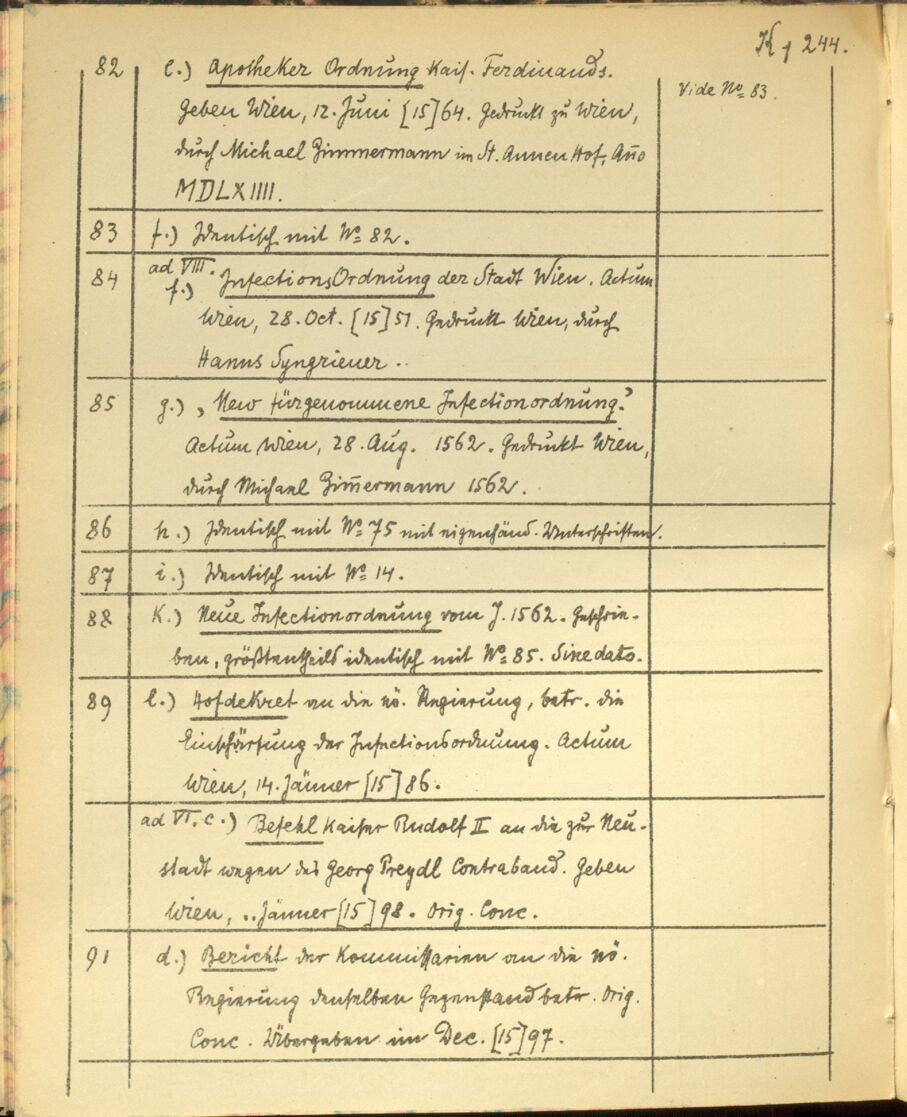 K 1 244.
82 e.) Apotheker Ordnung Kais. Ferdinands.
Vide No 83.
Geben Wien, 12. Juni [15]64. Gedruckt zu Wien,
durch Michael Zimmermann im St. Annen Hof, Año
MDLXIIII.
83 f.) Identisch mit No 82.
84 ad VIII. f.) InfectionsOrdnung der Stadt Wien. Actum
Wien, 28. Oct. [15]51. Gedruckt Wien, durch
Hanns Syngriener..
85 g.) "New fürgenommene Infectionordnung."
Actum Wien, 28. Aug. 1562. Gedruckt Wien,
durch Michael Zim̅ermann 1562.
86 h.) Identisch mit No 75 mit eigenhänd. Unterschriften.
87 i.) Identisch mit No 14.
88 k.) Neue Infectionordnung vom J. 1562. Geschrie-
ben, größtentheils identisch mit No 85. Sine dato.
89 l.) Hofdekret an die nö. Regierung, betr. die
Einschärfung der Infectionsordnung. Actum
Wien, 14. Jänner [15]86.
ad VI. c.) Befehl Kaiser Rudolf II an die zur Neu-
stadt wegen des Georg Preydl Contraband. Geben
Wien, .. Jänner [15]98. Orig. Conc.
91 d.) Bericht der Kommissarien an die nö.
Regierung denselben Gegenstand betr. Orig.
Conc. Übergeben im Dec. [15]97.